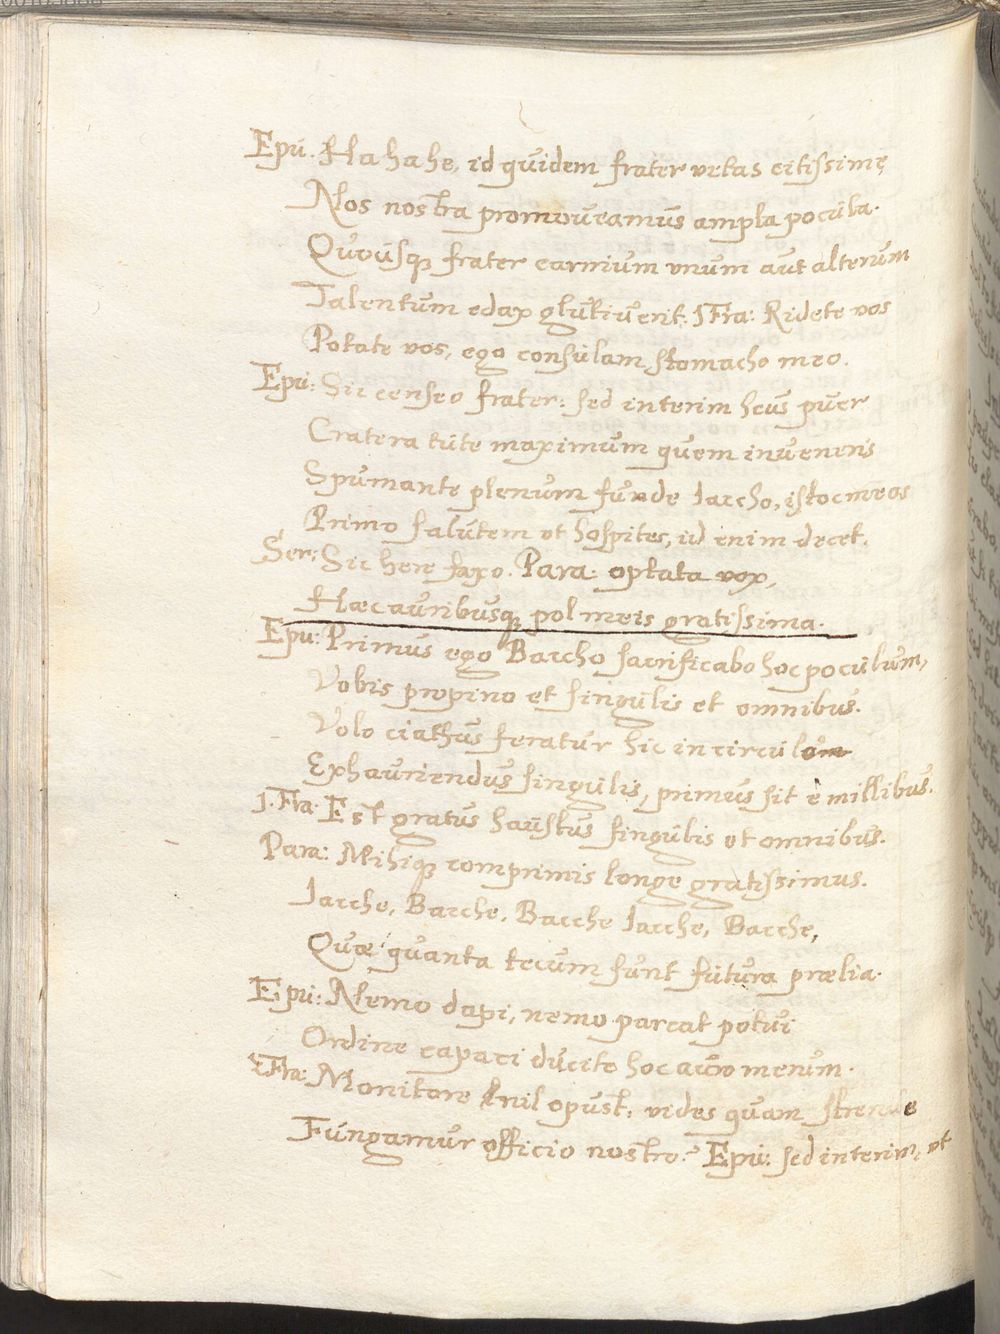 Epú. Ha ha he, id quidem frater vetas citissimę
Nos nostra promoveamus ampla pocula.
Quousq; frater carnium vnum aut alterum
Talentum edax glutiverit. 1 Fra: Ridete vos
Potate vos, ego consulam stomacho meo.
Epú: Sic censeo frater: sed interim heus puer
Cratera tute maximum quem inveneris
Spumante plenum funde Iaccho, istoc meos
Primo salutem vt hospites, id enim decet.
Ser: Sic here faxo. Para: optata vox,
Hæc auribusq; pol meis gratissima.
Epu: Primus ego Baccho sacrificabo hoc poculum,
Vobis propino et singulis et omnibus.
Volo ciathus feratur hic in circulom
Exhauriendus singulis, primus sit è millibus.
1. Fra. Est gratus haustus singulis et omnibus.
Para: Mihiq; comprimis longe gratissimus.
Iacche, Bacche, Bacche Iacche, Bacche,
Quæ quanta tecum sunt futura prælia.
Epú: Nemo dapi, nemo parcat potui
Ordine capaci ducite hoc merum.
Fra: Monitore nil opust, vides quam strenue
Fungamur officio nostro. Epú: sed interim, vt